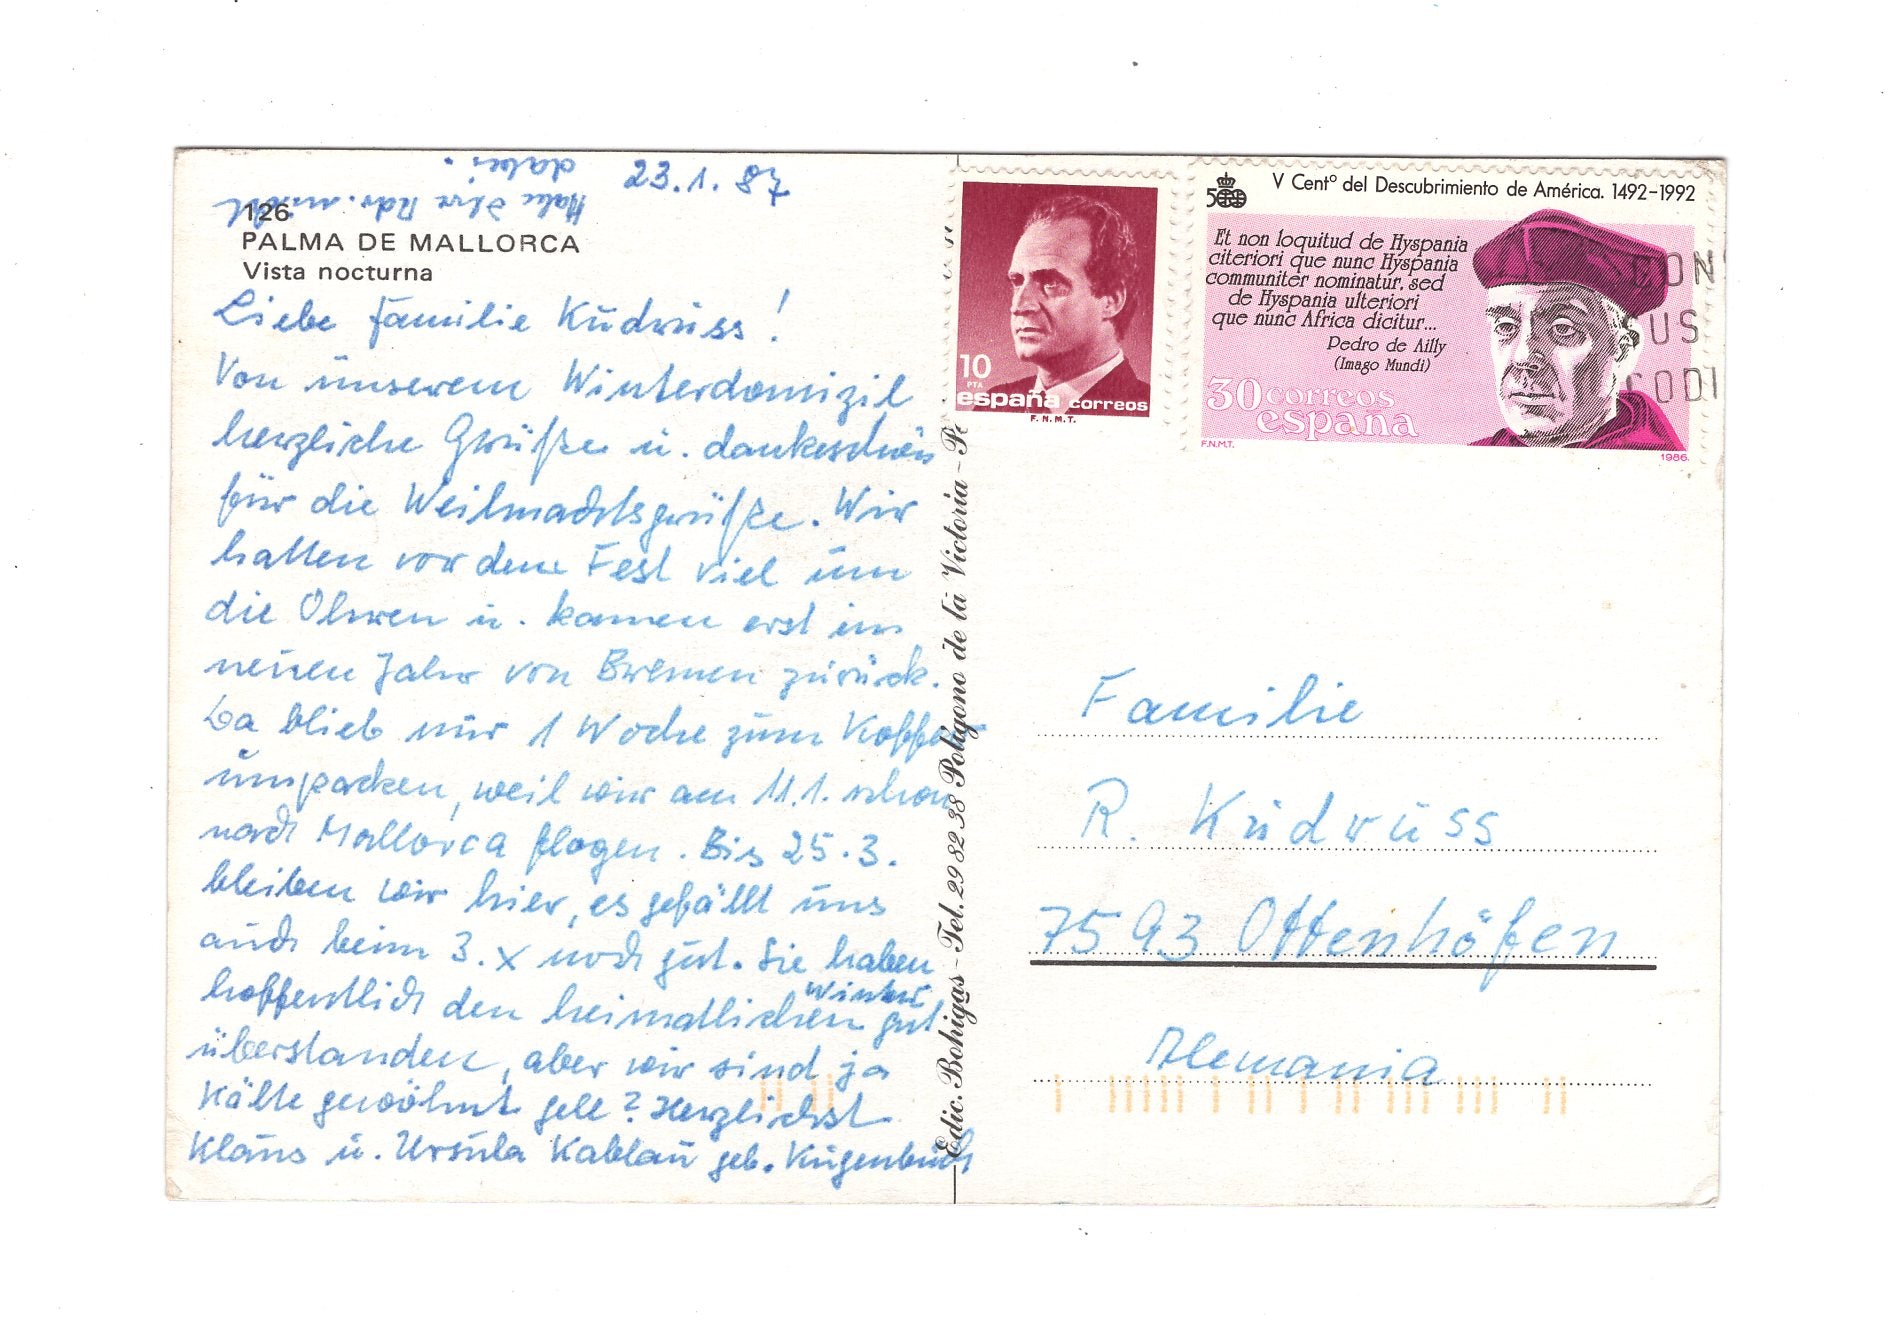 23.1.87
Habe Ihre Adr. nicht
dabei.
126
PALMA DE MALLORCA
Vista nocturna
Liebe Familie Kudruss!
Von unserem Winterdomizil
herzliche Grüße u. dankeschön
für die Weihnachtsgrüße. Wir
hatten vor dem Fest viel um
die Ohren u. kamen erst im
neuen Jahr von Bremen zurück.
Da blieb nur 1 Woche zum Koffer
umpacken, weil wir am 11.1. schon
nach Mallorca flogen. Bis 25.3.
bleiben wir hier, es gefällt uns
auch beim 3. x noch gut. Sie haben
hoffentlich den heimatlichen Winter gut
überstanden, aber wir sind ja
Kälte gewöhnt gell? Herzlichst
Klaus u. Ursula Kablau geb. Kugenbuch
Edic. Bohigas - Tel. 29 82 38 Poligono de la Victoria - Pa
10
PTA
españa correos
F.N.M.T.
500
V Centº del Descubrimiento de América. 1492-1992
Et non loquitud de Hyspania
citeriori que nunc Hyspania
communiter nominatur, sed
de Hyspania ulteriori
que nunc Africa dicitur...
Pedro de Ailly
(Imago Mundi)
30 correos
españa
F.N.M.T.
1986.
CON
SUS
CODI
Familie
R. Kudruss
7593 Ottenhöfen
Alemania